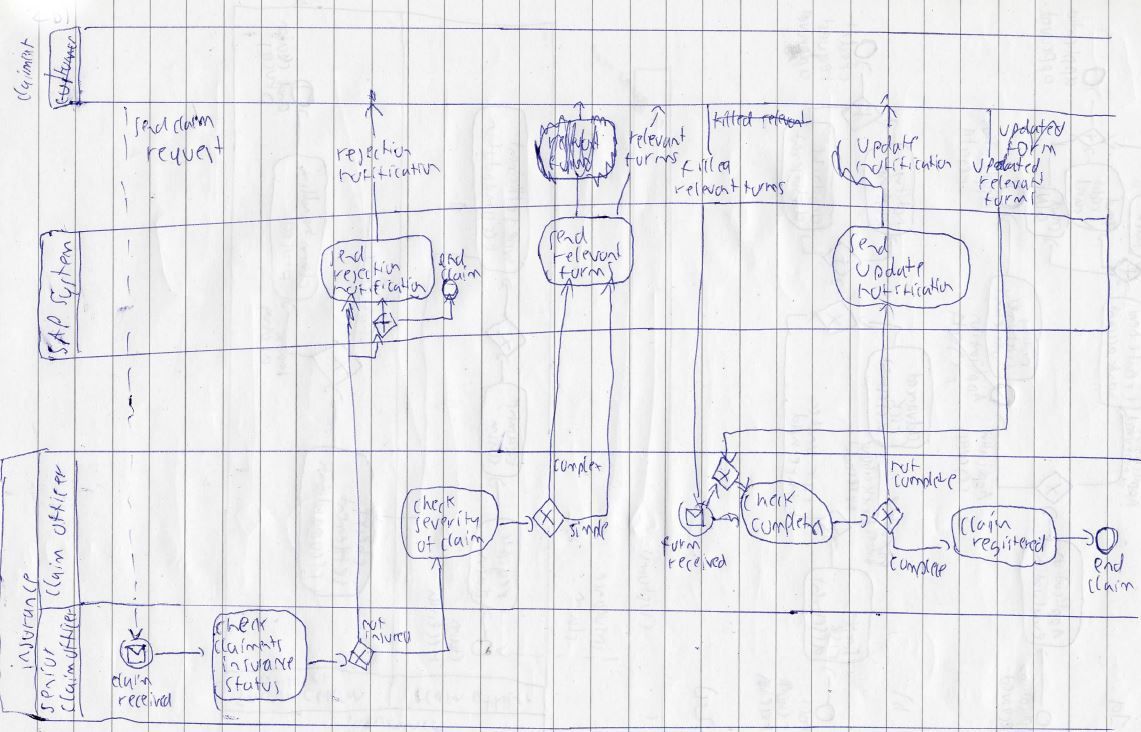 claimant
customer
send claim
request
rejection
notification
relevant
forms
relevant
forms
filled relevant
filled
relevant forms
update
notification
updated
form
updated
relevant
forms
SAP System
send
rejection
notification
end
claim
send
relevant
forms
send
update
notification
insurance
claim officer
check
severity
of claim
complex
simple
form
received
check
completes
not
complete
complete
claim
registered
end
claim
senior
claim officer
claim
received
check
claimants
insurance
status
not
insured